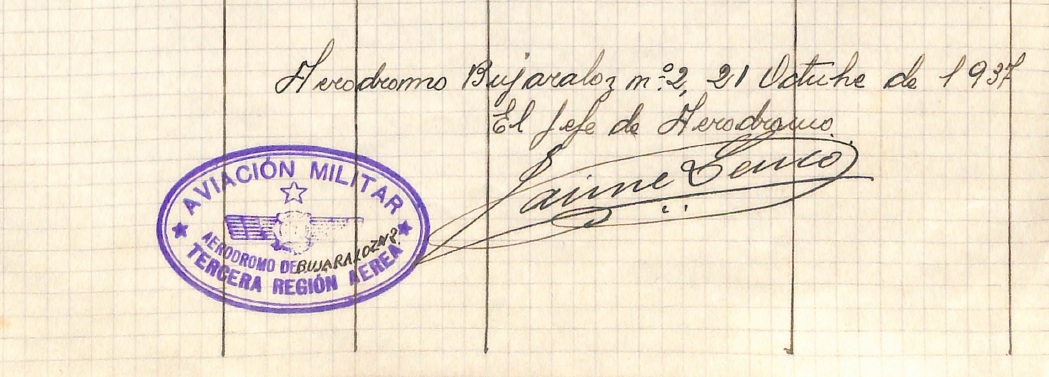 Aerodromo Bujaraloz nº 2, 21 Octubre de 1937
El Jefe de Aerodromo
Jaime
AVIACIÓN MILITAR
AERODROMO DE BUJARALOZ
TERCERA REGIÓN AEREA